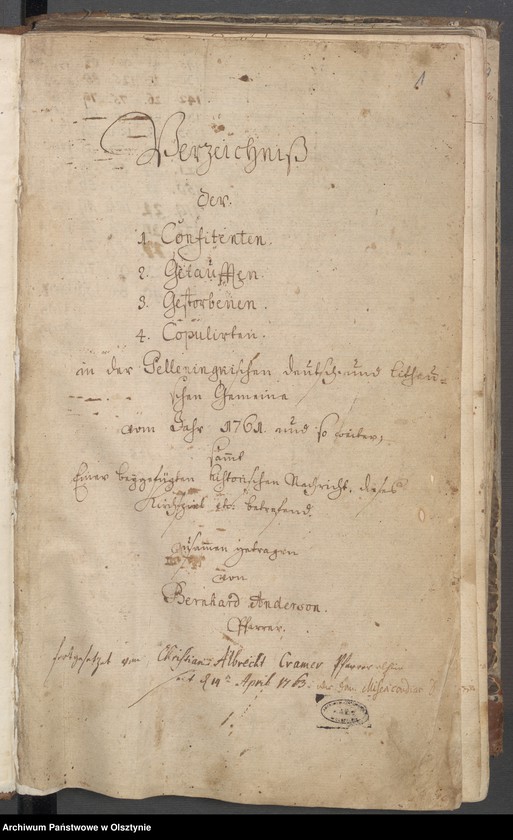 1
Verzeichniß
der.
1. Confitenten.
2. Getaufften.
3. Gestorbenen.
4. Copulirten.
in der Pelleningkischen deutsch- und Litheui-
schen Gemeine
vom Jahr 1761. und so weiter,
sammt
Einer beygefügten historischen Nachricht, dieses
Kirchspiel etc. betrefend.
zusammen getragen
von
Bernhard Anderson.
Pfarrer.
fortgesetzet von Christian Albrecht Cramer Pfarrer
d 19 April 1763. Misericordias
1.
Archiwum Państwowe w Olsztynie